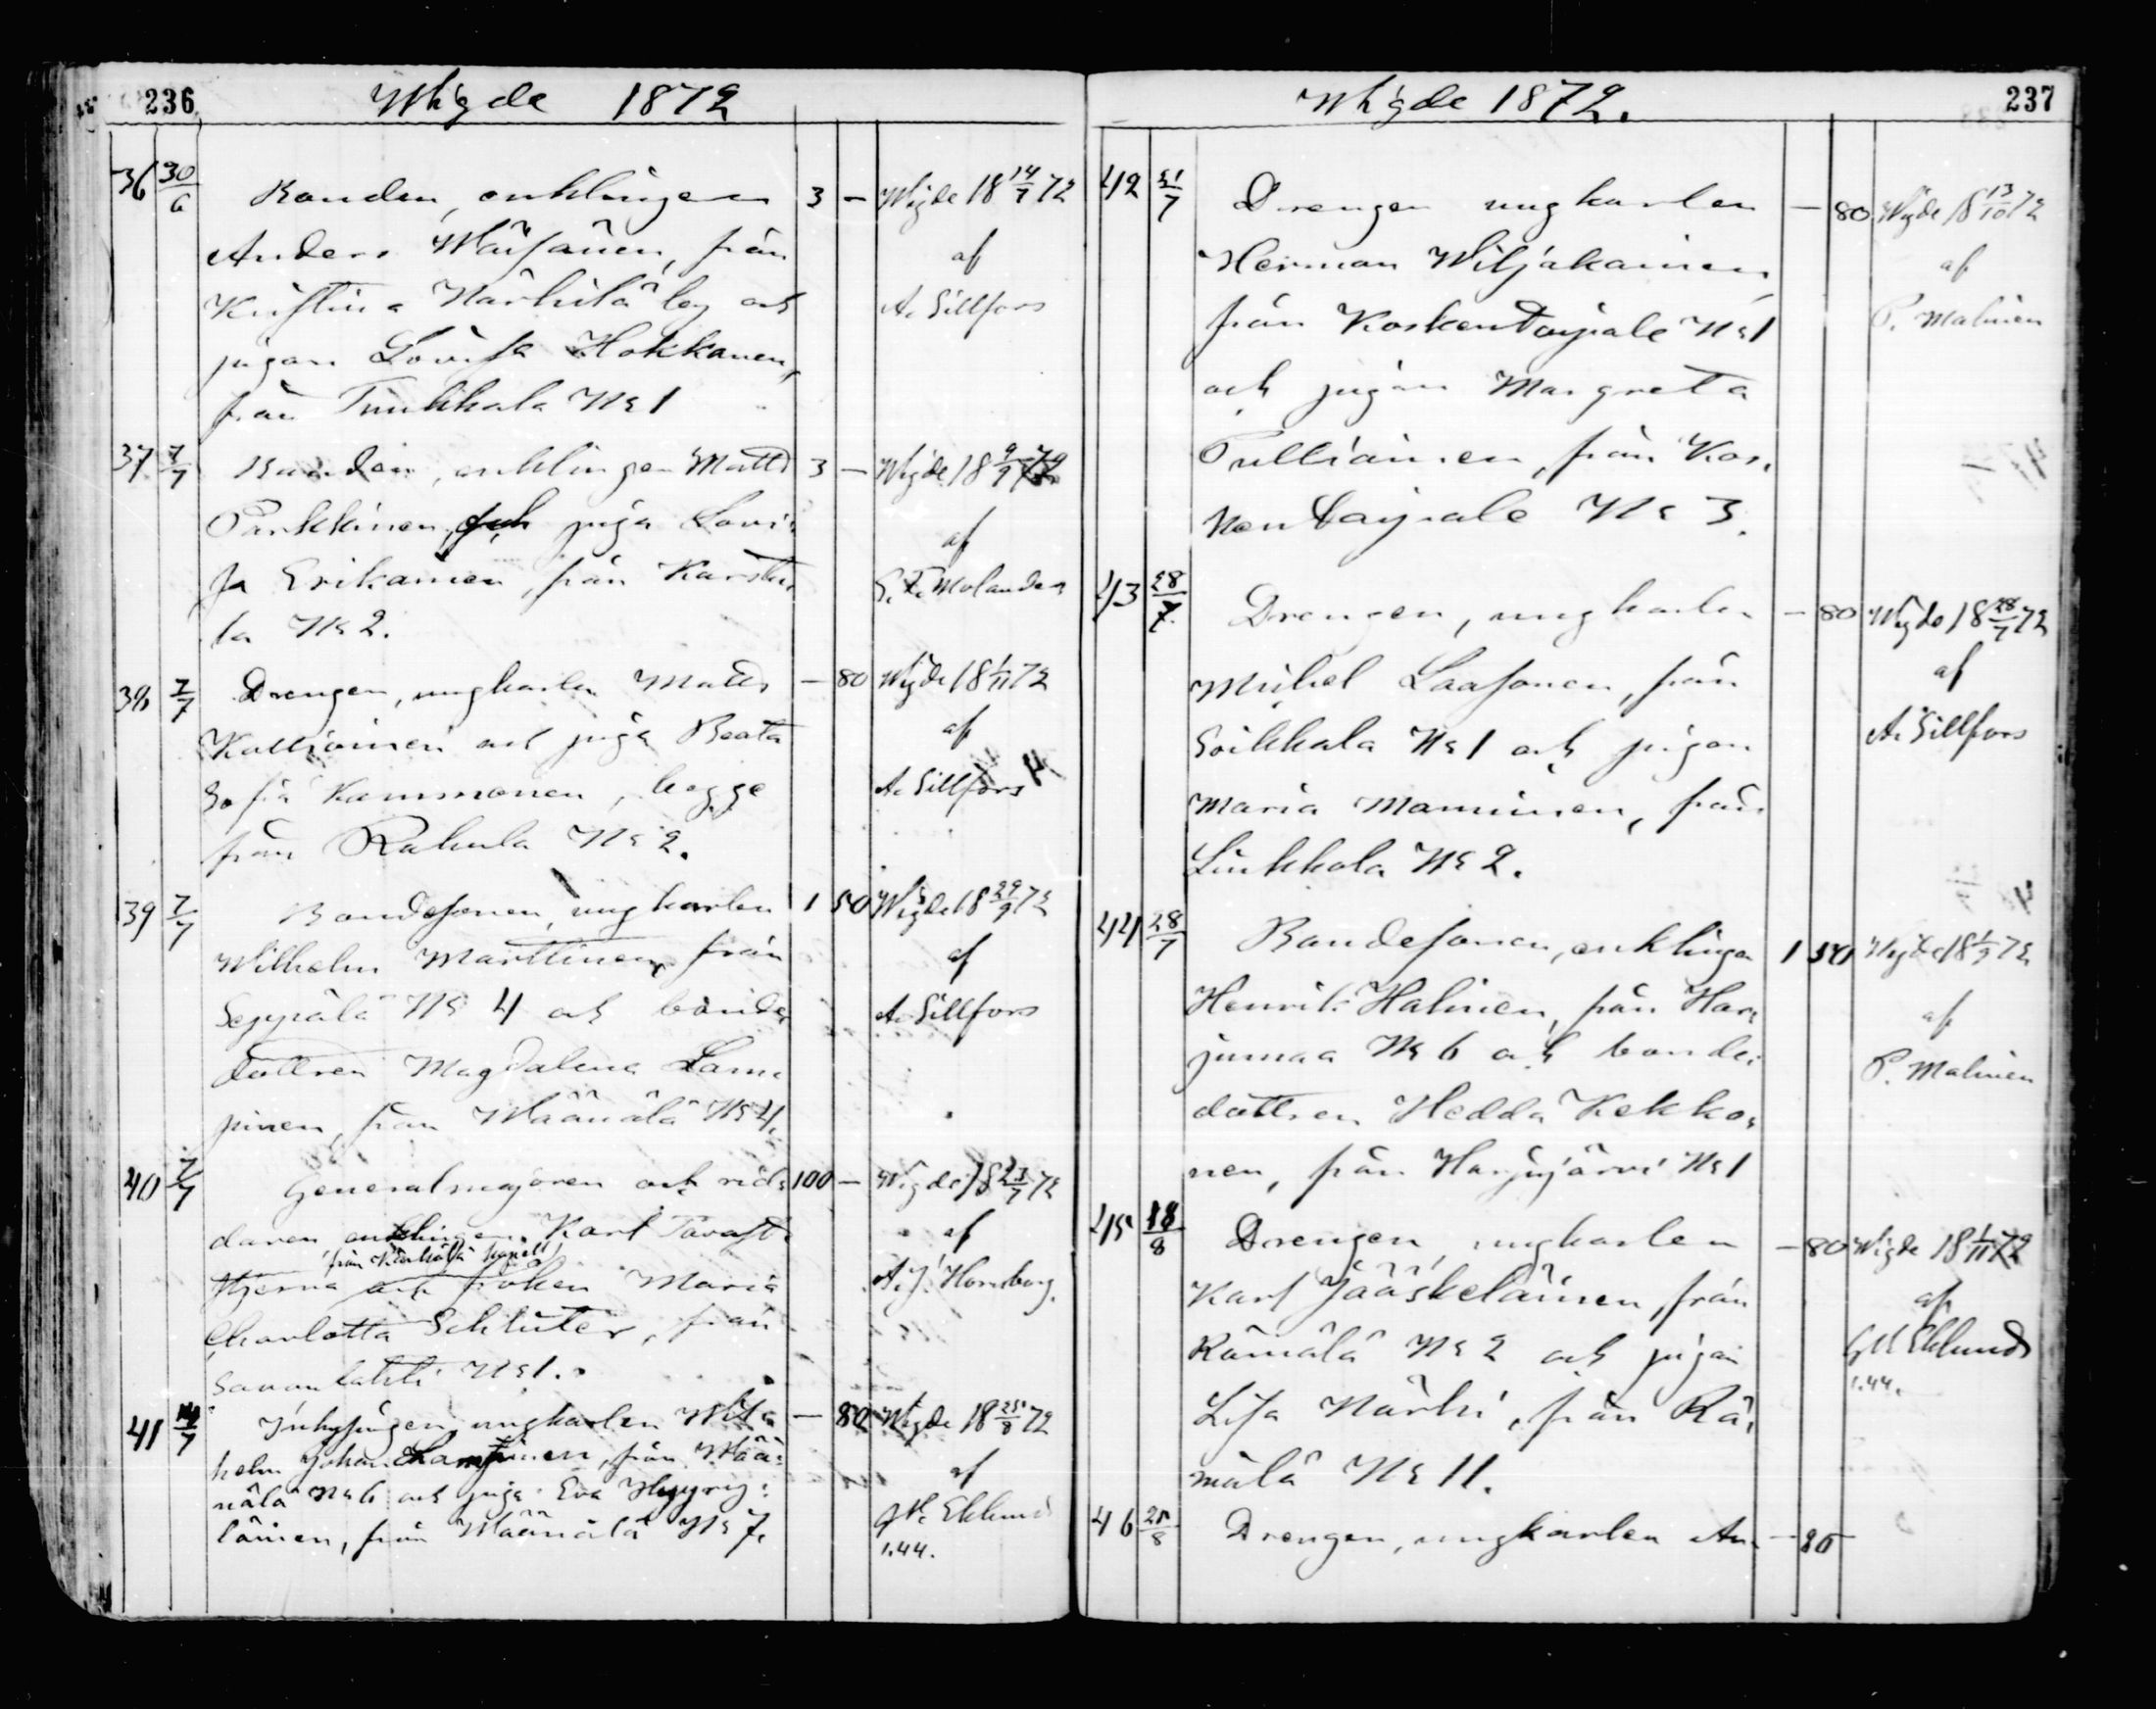 236
Wigde 1872
36 30/6 Bonden, enklingen 3 - Wigde 18 14/7 72
Anders Wäisänen, från af
Kristina Närhilä by och A. Sillfors
pigan Lovisa Hokkanen,
från Tuukkala No 1
37 7/7 Bonden, enklingen Matts 3 - Wigde 18 9/9 72
Parkkinen, och piga Lovi= af
sa Erikainen, från Karstu= Molander
la No 2.
38 7/7 Drengen, ungkarlen Matts - 80 Wigde 18 1/11 72
Kalliainen och piga Beata af
Sofia Kammonen, begge A. Sillfors
från Rahula No 2.
39 7/7 Bondesonen, ungkarlen 1 50 Wigde 18 29/9 72
Wilhelm Marttinen, från af
Seppälä No 4 och bonde A. Sillfors
dottren Magdalena Lam=
pinen, från Wäänälä No 4.
40 7/7 Generalmajoren och rid= 100 - Wigde 18 23/7 72
daren, enklingen Karl Tavast= af
från
stjerna och fröken Maria A. J. Hornborg.
Charlotta Schluter, från
Savonlahti No 1.
41 14/7 Inhysingen, ungkarlen Wil= - 80 Wigde 18 25/8 72
helm Johan Lampinen, från Wää= af
nälä No 6 och piga Eva Hyyry= Eklund
läinen, från Wäänälä No 7. 1.44.
Wigde 1872.
237
42 21/7 Drengen ungkarlen - 80 Wigde 18 13/10 72
Herman Wiljakainen, af
från Koskentaipale No 1 P. Malinen
och pigan Margreta
Pulliainen, från Kos=
kentaipale No 3.
43 28/7 Drengen, ungkarlen - 80 Wigde 18 28/7 72
Mickel Laasonen, från af
Soikkala No 1 och pigan A. Sillfors
Maria Manninen, från
Liukkola No 2.
44 28/7 Bondesonen, enklingen 1 50 Wigde 18 1/9 72
Henrik Halinen, från Har= af
jumaa No 6 och bonde= P. Malinen
dottren Hedda Kekko=
nen, från Harjujärvi No 1
45 18/8 Drengen, ungkarlen - 80 Wigde 18 1/11 72
Karl Jääskeläinen, från af
Rämälä No 2 och pigan Eklund
Lisa Närhi, från Rä= 1.44.
mälä No 11.
46 25/8 Drengen, ungkarlen An= - 80